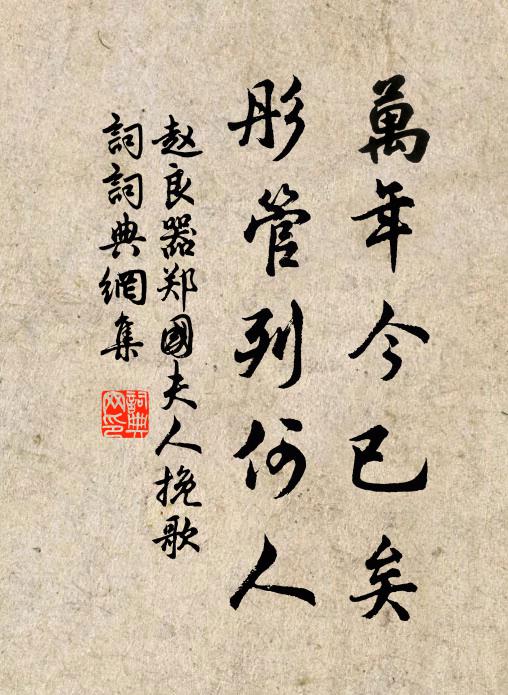 萬年今已矣
彤管列何人
赵良器郑國夫人挽歌
詞詞典網集
詞典网印